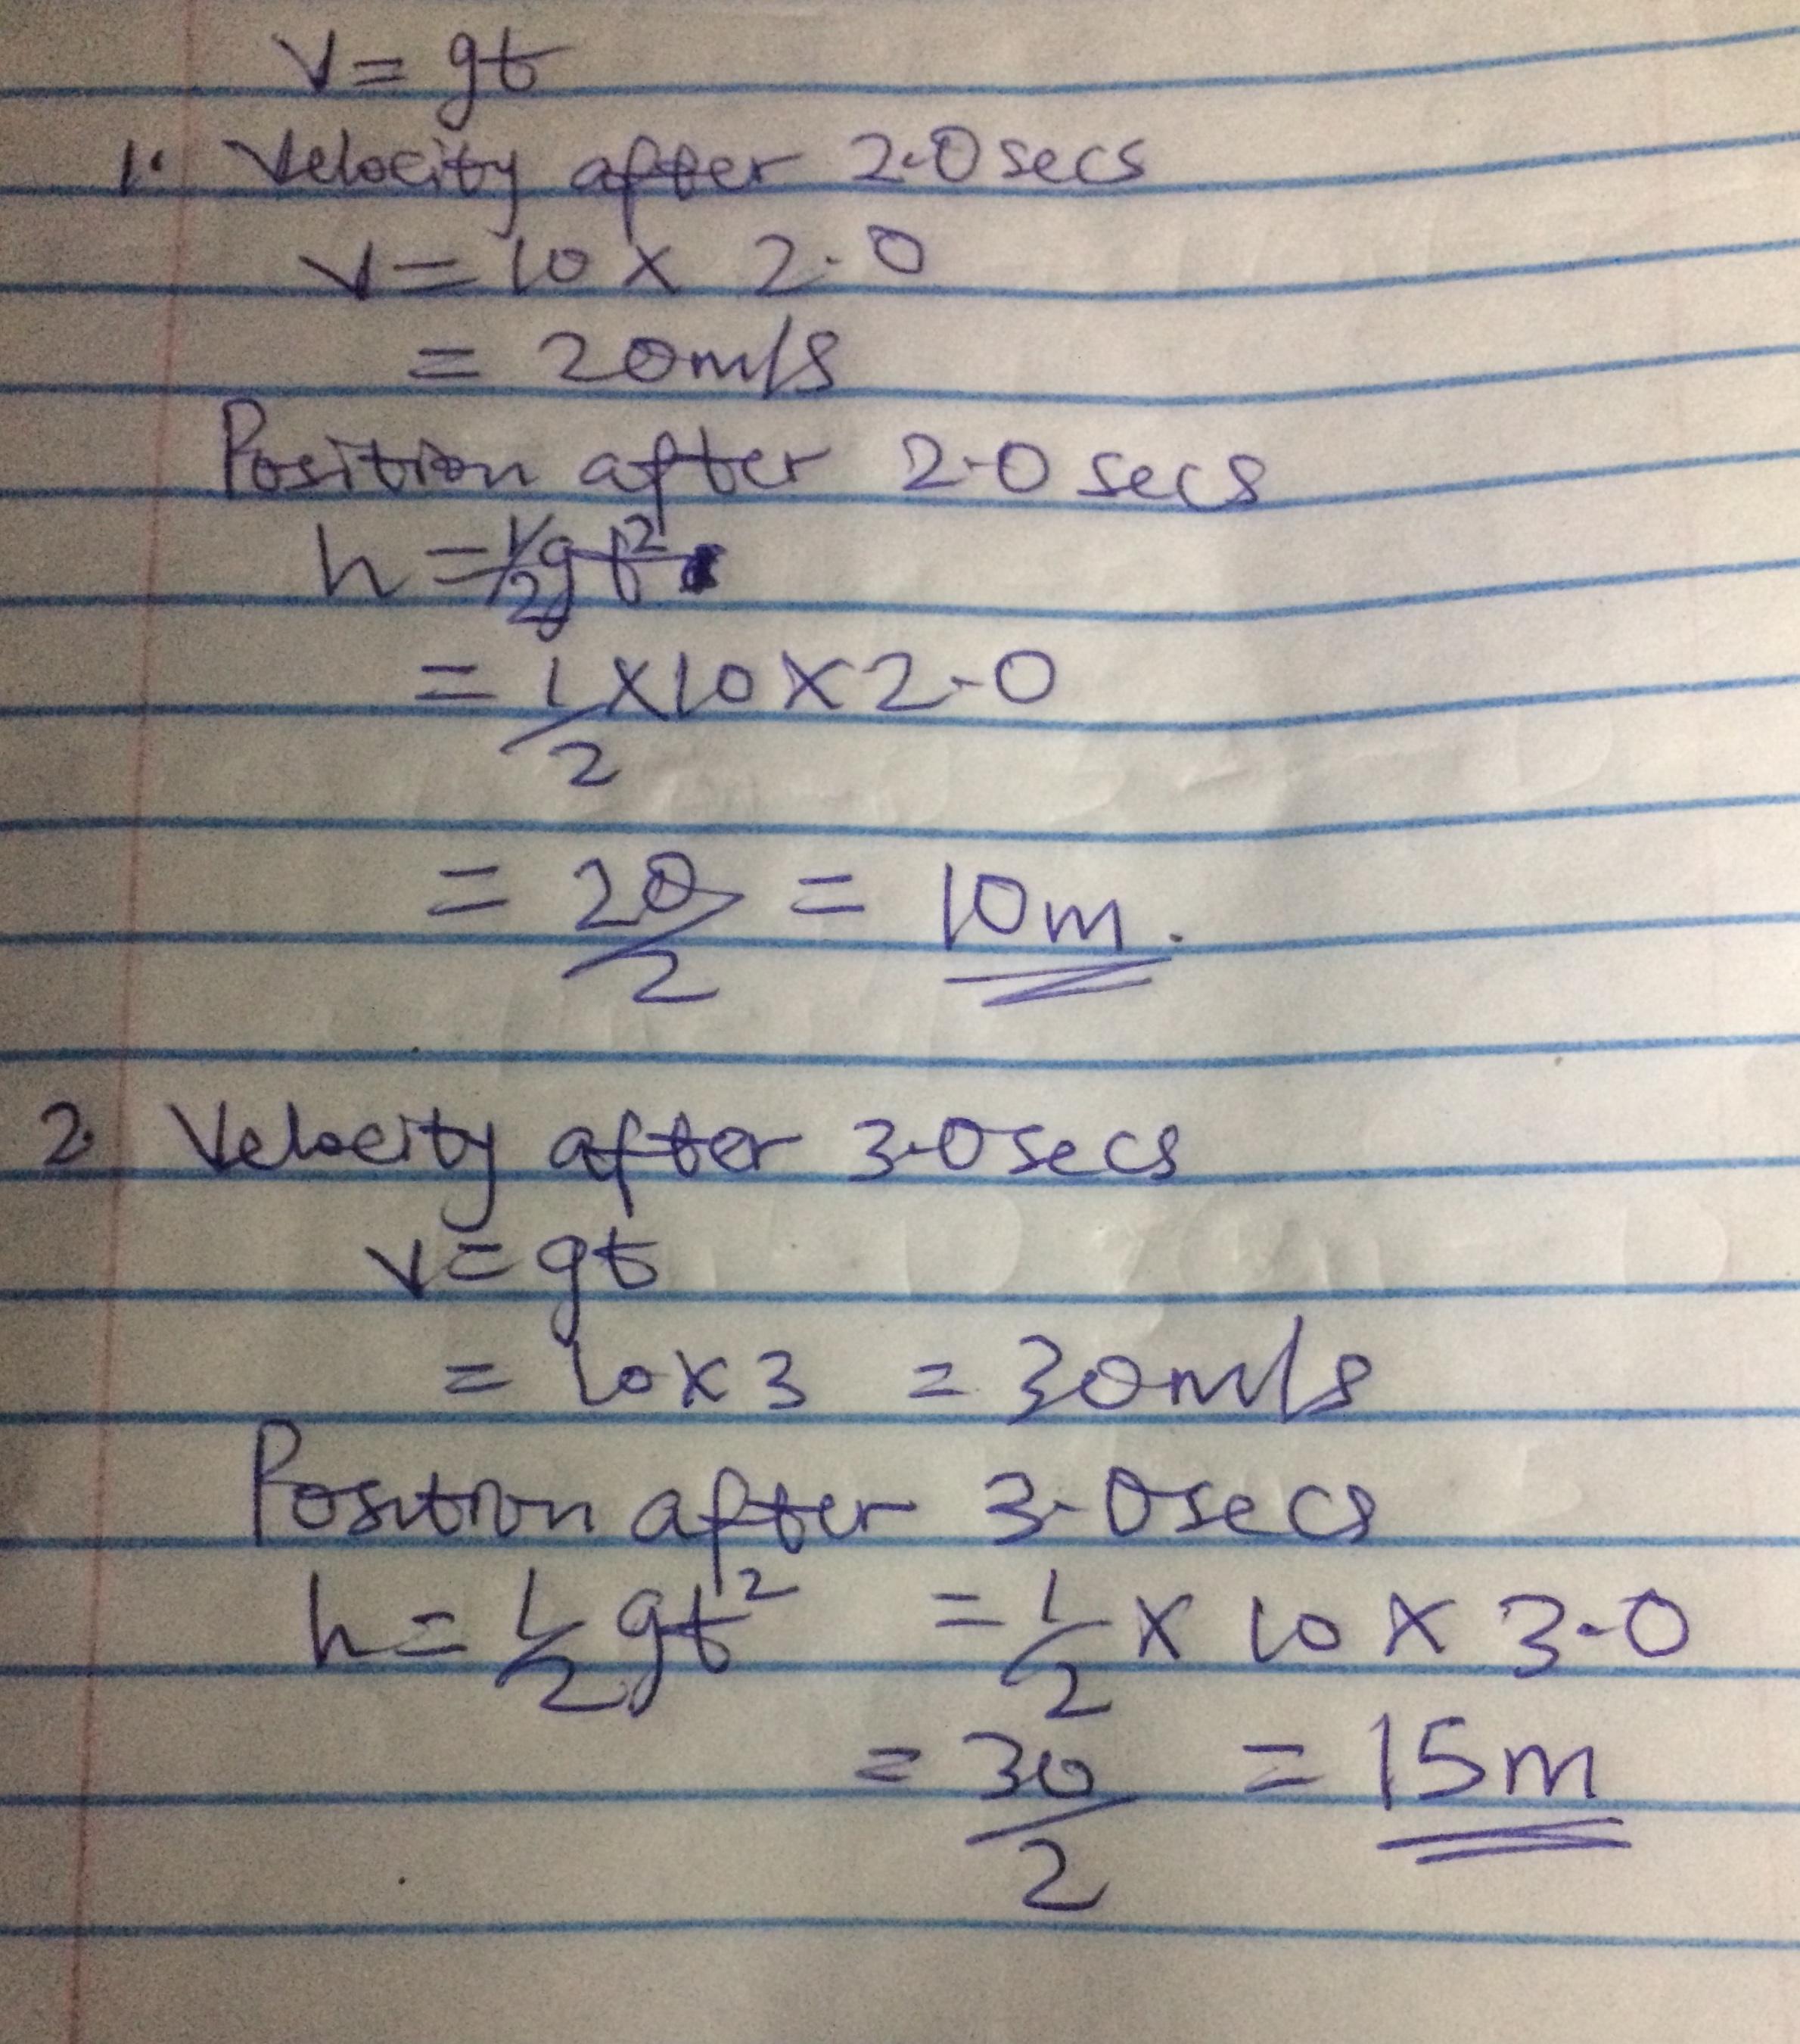 V = gt
1. Velocity after 2.0 secs
V = 10 x 2.0
= 20m/s
Position after 2.0 secs
h = 1/2gt²
= 1/2 x 10 x 2.0
= 20/2 = 10m.
2. Velocity after 3.0 secs
V = gt
= 10 x 3 = 30m/s
Position after 3.0 secs
h = 1/2 gt² = 1/2 x 10 x 3.0
= 30/2 = 15m